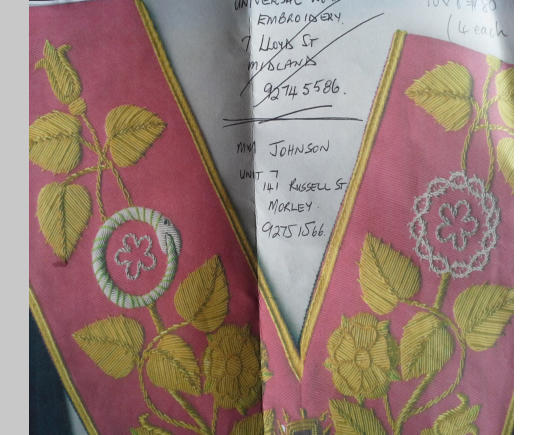 UNIVERSAL
EMBROIDERY.
7 LLOYD ST
MIDLAND
92745586.
JOHNSON
UNIT 7
141 RUSSELL ST
MORLEY.
92751566.
(4 each